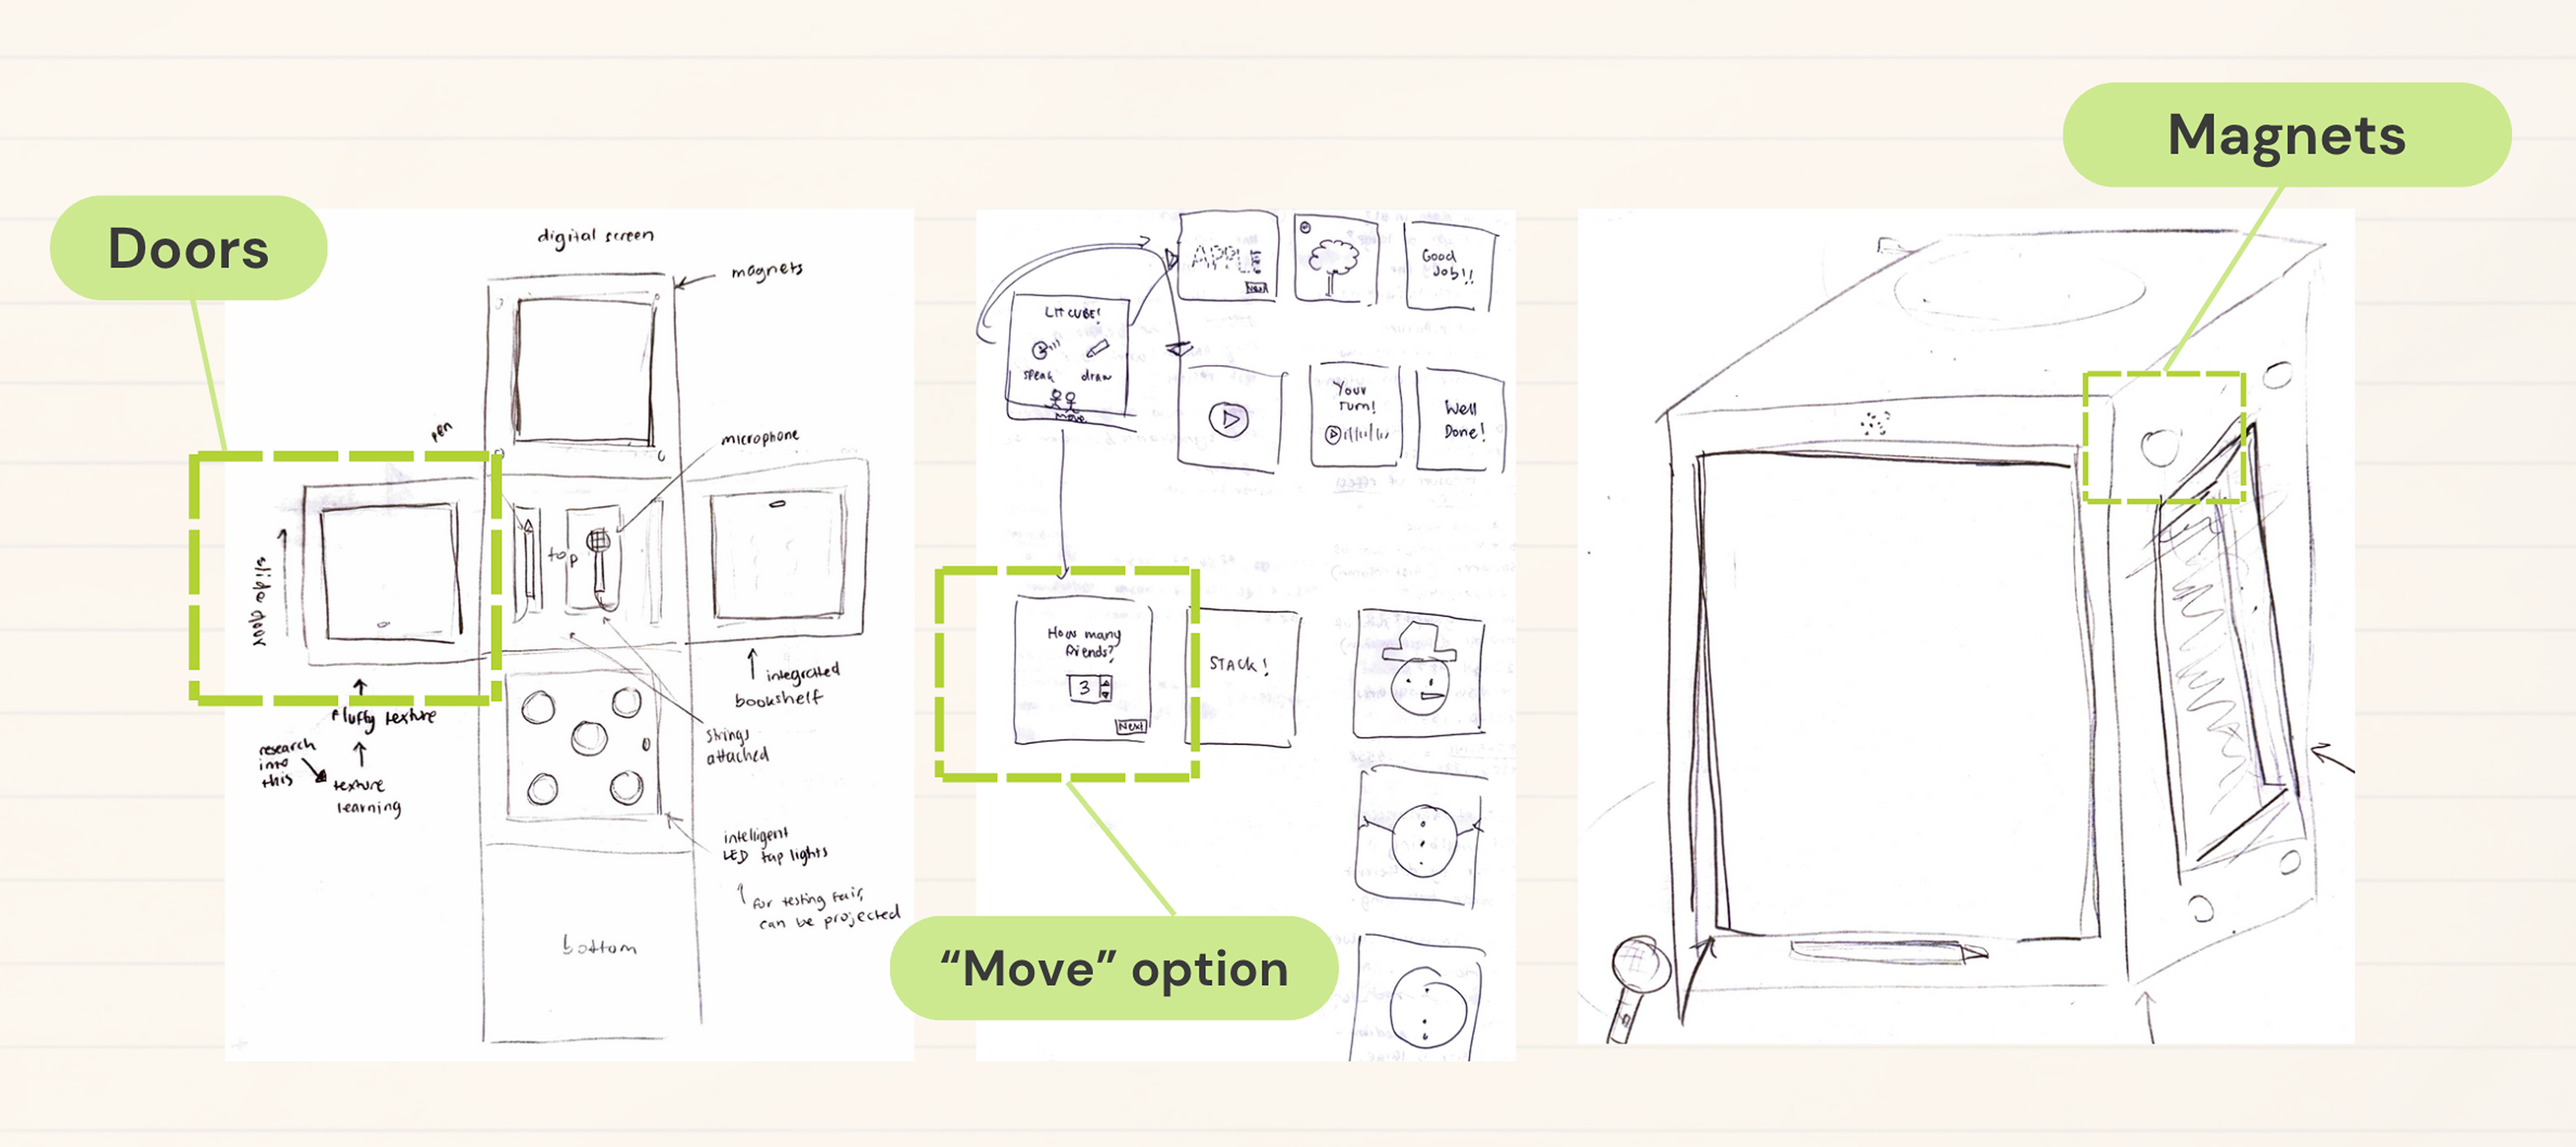 Doors
digital screen
magnets
pen
microphone
slide door
top
fluffy texture
research
into
this
texture
learning
integrated
bookshelf
strings
attached
intelligent
LED tap lights
for testing fair,
can be projected
bottom
LIT CUBE!
speak
draw
move
APPLE
Next
Good
Job!!
Your
turn!
Well
Done!
How many
friends?
3
Next
STACK!
“Move” option
Magnets